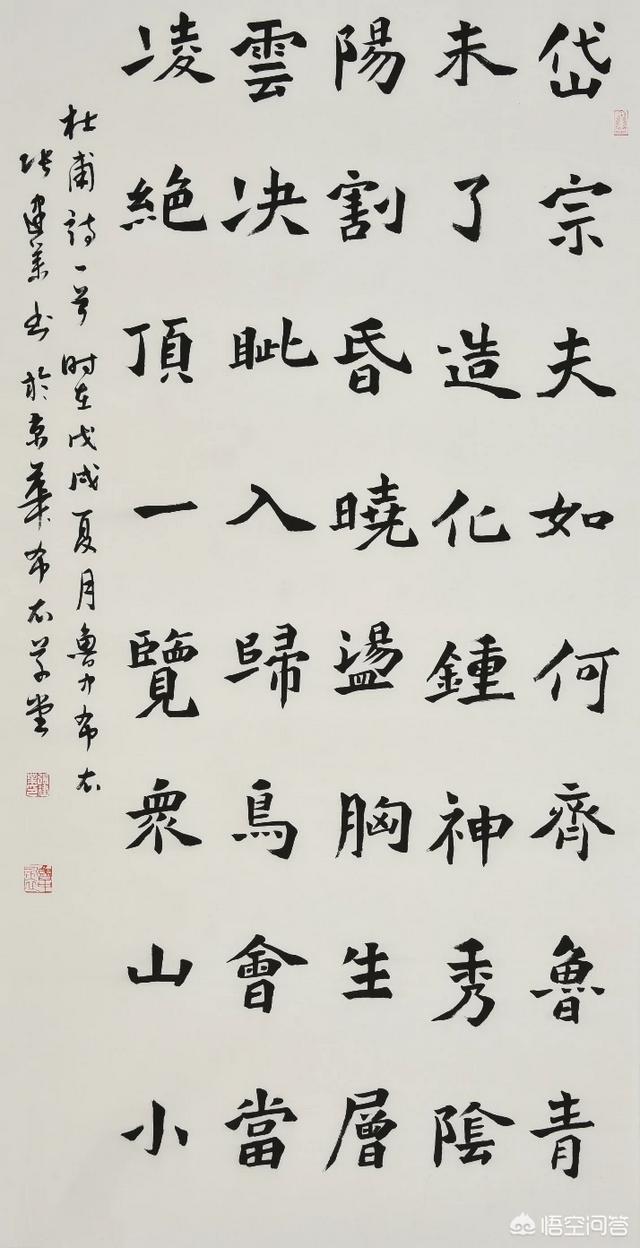 岱宗夫如何齊魯青
未了造化鍾神秀陰
陽割昏曉盪胸生層
雲决眦入歸鳥會當
凌絶頂一覽衆山小
杜甫詩一首时在戊戌夏月魯中布衣
张建業书於京華布衣草堂
悟空问答